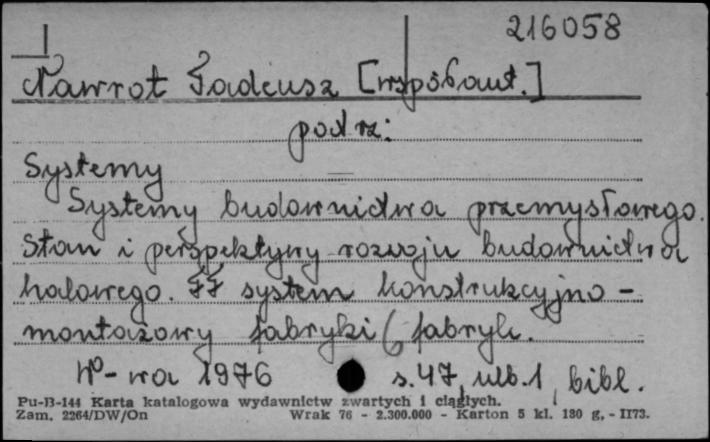 216058
Nawrot Tadeusz [współaut.]
pod rz:
Systemy
Systemy budownictwa przemysłowego.
Stan i perspektywy rozwoju budownictwa
halowego. FF system konstrukcyjno-
montażowy fabryki fabryk.
W-wa 1976 s. 47, nlb. 1, bibl.
Pu-B-144 Karta katalogowa wydawnictw zwartych i ciągłych.
Zam. 2264/DW/On Wrak 76 - 2.300.000 - Karton 5 kl. 180 g, - II73.